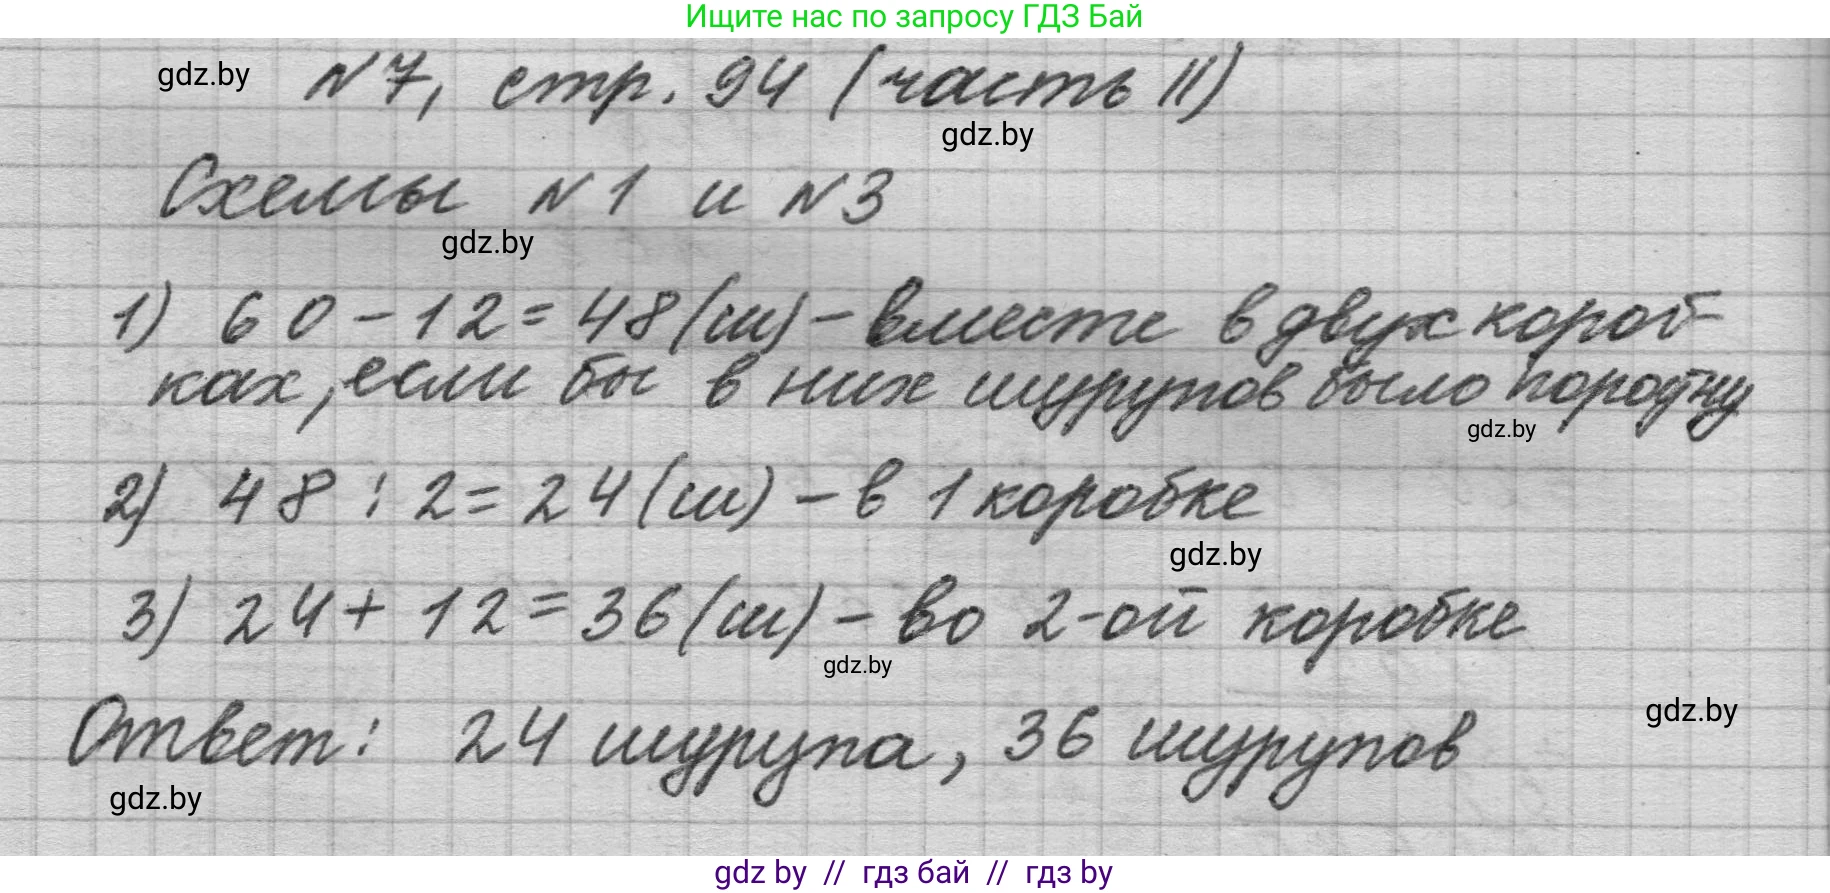 Ищите нас по запросу ГДЗ Бай
gdz.by
N7, стр. 94 (часть II)
gdz.by
Схемы N1 и N3
gdz.by
1) 60-12=48(ш)-вместе в двух короб-
ках, если бы в них шурупов было поровну
gdz.by
2) 48:2=24(ш)-в 1 коробке
gdz.by
3) 24+12=36(ш)-во 2-ой коробке
gdz.by
Ответ: 24 шурупа, 36 шурупов
gdz.by
gdz.by
gdz by // гдз бай // гдз by